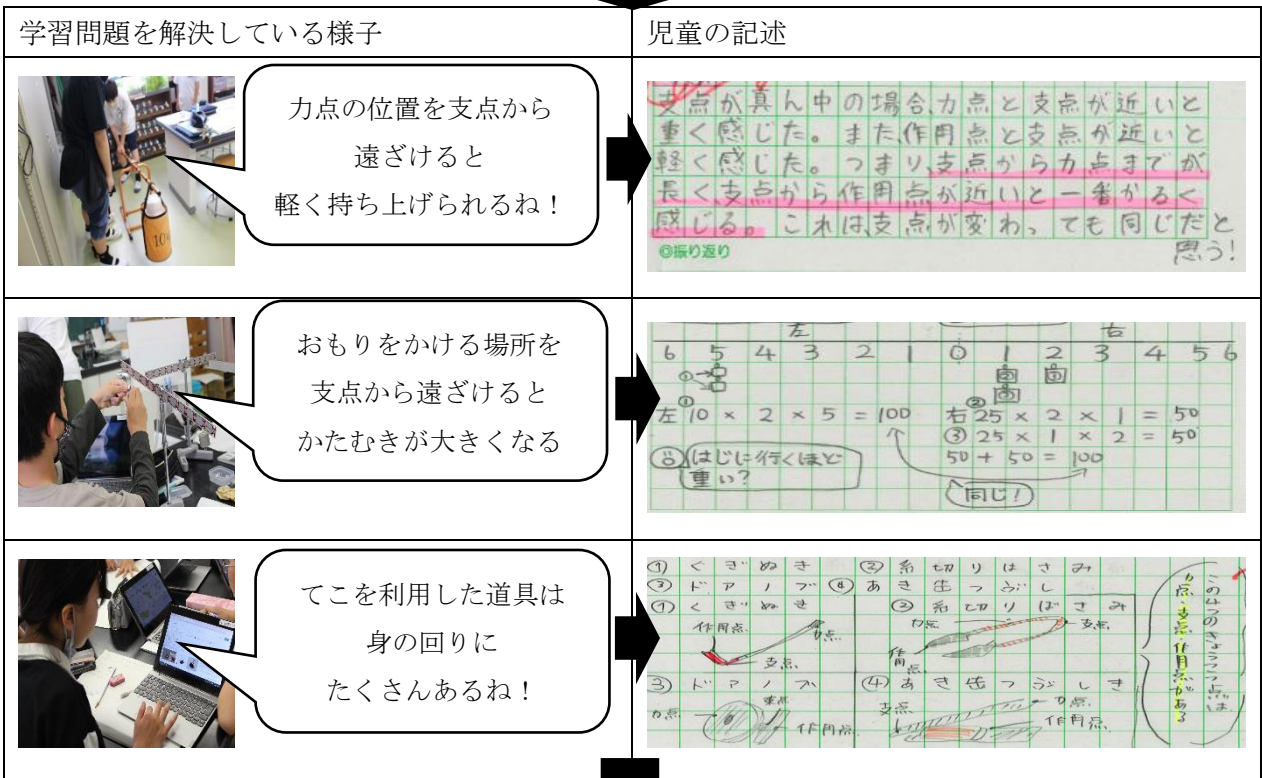 学習問題を解決している様子
児童の記述
力点の位置を支点から
遠ざけると
軽く持ち上げられるね！
10
支点が真ん中の場合、力点と支点が近いと
重く感じた。また、作用点と支点が近いと
軽く感じた。つまり、支点から力点までが
長く、支点から作用点が近いと一番かるく
感じる。これは、支点が変わっても同じだと
思う!
◎振り返り
おもりをかける場所を
支点から遠ざけると
かたむきが大きくなる
左 右
6 5 4 3 2 1 0 1 2 3 4 5 6
①
① ②
左 10 × 2 × 5 = 100 右 25 × 2 × 1 = 50
③ 25 × 1 × 2 = 50
はじに行くほど 50 + 50 = 100
重い?
同じ!
てこを利用した道具は
身の回りに
たくさんあるね！
① くぎぬき ② 糸切りはさみ
③ ドアノブ ④ あき缶つぶし
① くぎぬき ② 糸切りばさみ
作用点 力点 支点
力点 支点 作用点
③ ドアノブ ④ あき缶つぶしき
力点 支点 作用点
支点 力点 作用点
この4つのきょうつう点は、
力点・支点・作用点がある